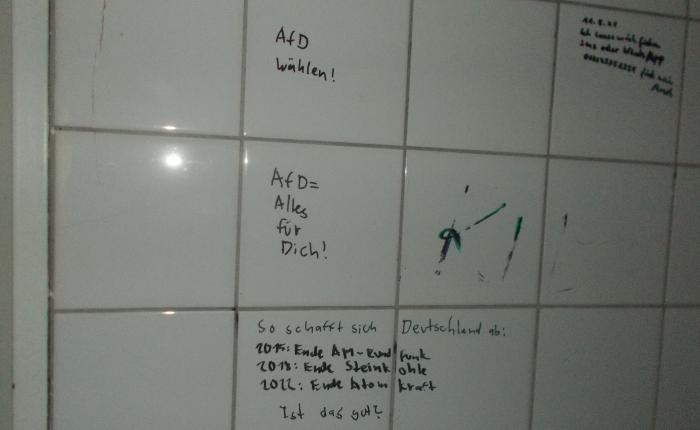 AfD
wählen!
AfD=
Alles
für
Dich!
sms oder WhatsApp
So schafft sich Deutschland ab:
2015: Ende AM-Rundfunk
2018: Ende Steinkohle
2022: Ende Atomkraft
Ist das gut?